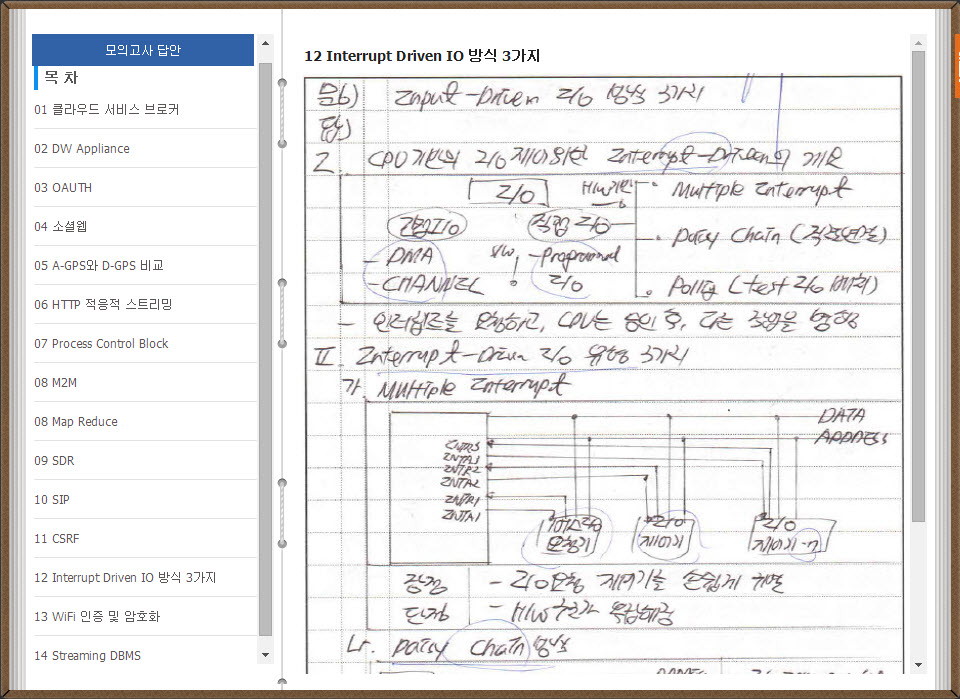 모의고사 답안
목 차
01 클라우드 서비스 브로커
02 DW Appliance
03 OAUTH
04 소셜웹
05 A-GPS와 D-GPS 비교
06 HTTP 적응적 스트리밍
07 Process Control Block
08 M2M
08 Map Reduce
09 SDR
10 SIP
11 CSRF
12 Interrupt Driven IO 방식 3가지
13 WiFi 인증 및 암호화
14 Streaming DBMS
12 Interrupt Driven IO 방식 3가지
문6) Input-Driven I/O 방식 3가지
답)
I. CPU기반의 I/O 제어위한 Interrupt-Driven의 개요
I/O H/W기반 Multiple Interrupt
간접I/O 직접 I/O Daisy Chain (직렬연결)
- DMA S/W -Programmed
-CHANNEL I/O Polling (test I/O 배치)
- 인터럽트를 요청하고, CPU는 승인 후, 다른 작업을 병행
II. Interrupt-Driven I/O 유형 3가지
가. Multiple Interrupt
DATA
ADDRESS
INTR3
INTA3
INTR2
INTA2
INTR1
INTA1
I/O
요청기
I/O
제어기
I/O
제어기-n
장점 - I/O요청 제어기를 손쉽게 판별
단점 - H/W 추가 복잡해짐
나. Daisy Chain 방식